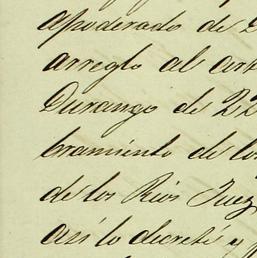 apoderado de
arreglo al art
Durango de 22
bramiento de los
de los Rios Juez
así lo decreté y